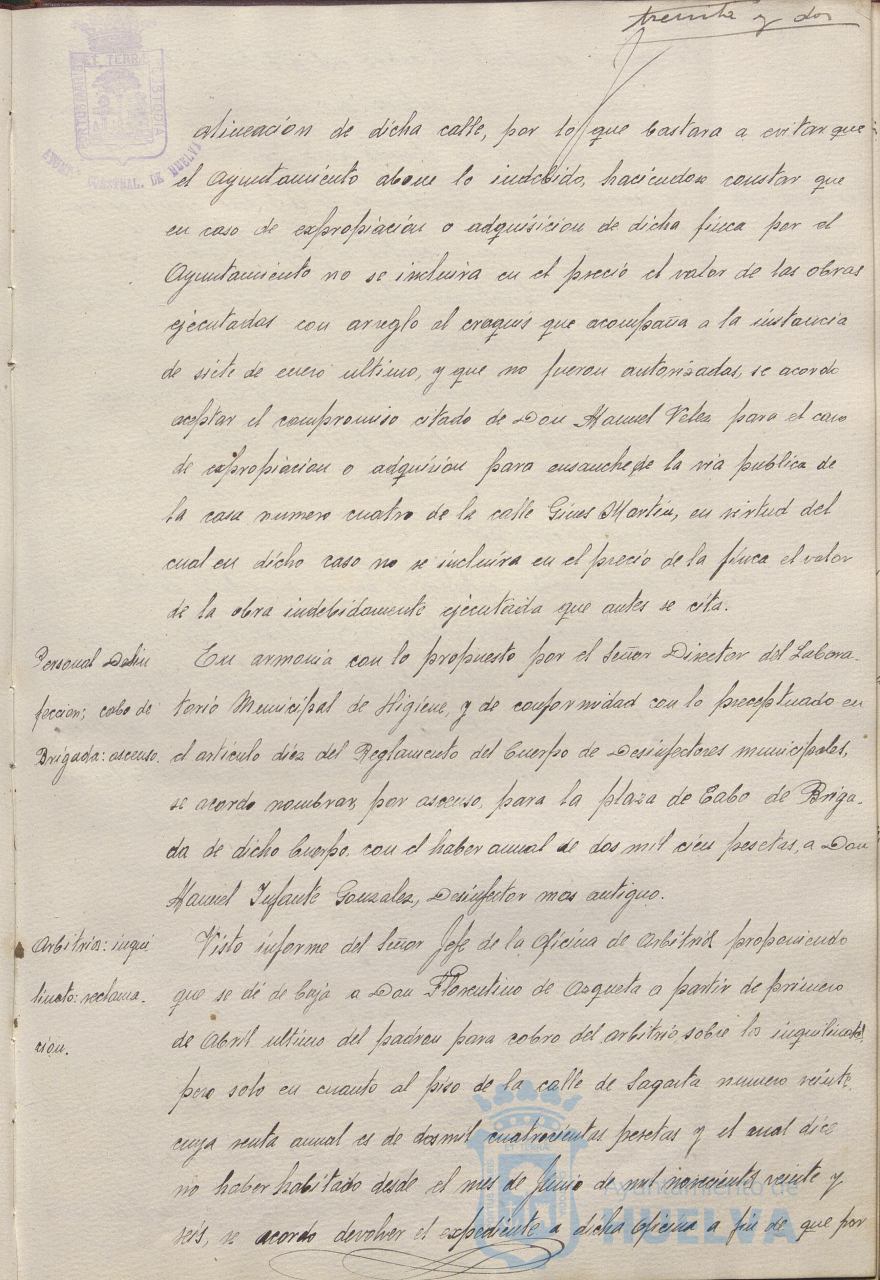 treinta y dos
alineación de dicha calle, por lo que bastara a evitar que
el Ayuntamiento abone lo indebido, haciendose constar que
en caso de expropiación o adquisicion de dicha finca por el
Ayuntamiento no se incluira en el precio el valor de las obras
ejecutadas con arreglo al croquis que acompaña a la instancia
de siete de enero ultimo, y que no fueron autorizadas, se acordo
aceptar el compromiso citado de Don Manuel Velez para el caso
de expropiacion o adquision para ensanche de la via publica de
la casa numero cuatro de la calle Gines Martin, en virtud del
cual en dicho caso no se incluira en el precio de la finca el valor
de la obra indebidamente ejecutada que antes se cita.
Personal Desin
feccion; cabo de
Brigada: ascenso.
En armonia con lo propuesto por el Señor Director del Labora-
torio Municipal de Higiene, y de conformidad con lo preceptuado en
el articulo diez del Reglamento del Cuerpo de Desinfectores municipales,
se acordo nombrar, por ascenso, para la plaza de Cabo de Briga-
da de dicho Cuerpo, con el haber anual de dos mil cien pesetas, a Don
Manuel Infante Gonzalez, Desinfector mas antiguo.
Arbitrios: inqui
linato: reclama-
cion.
Visto informe del Señor Jefe de la Oficina de Arbitrios proponiendo
que se dé de baja a Don Florentino de Azqueta a partir de primero
de Abril ultimo del padron para cobro del arbitrio sobre lo inquilinato,
pero solo en cuanto al piso de la calle de Sagasta numero veinte,
cuya renta anual es de dos mil cuatrocientas pesetas y el cual dice
no haber habitado desde el mes de Junio de mil novecientos veinte y
seis, se acordo devolver el expediente a dicha Oficina a fin de que por
Ayuntamiento de
HUELVA